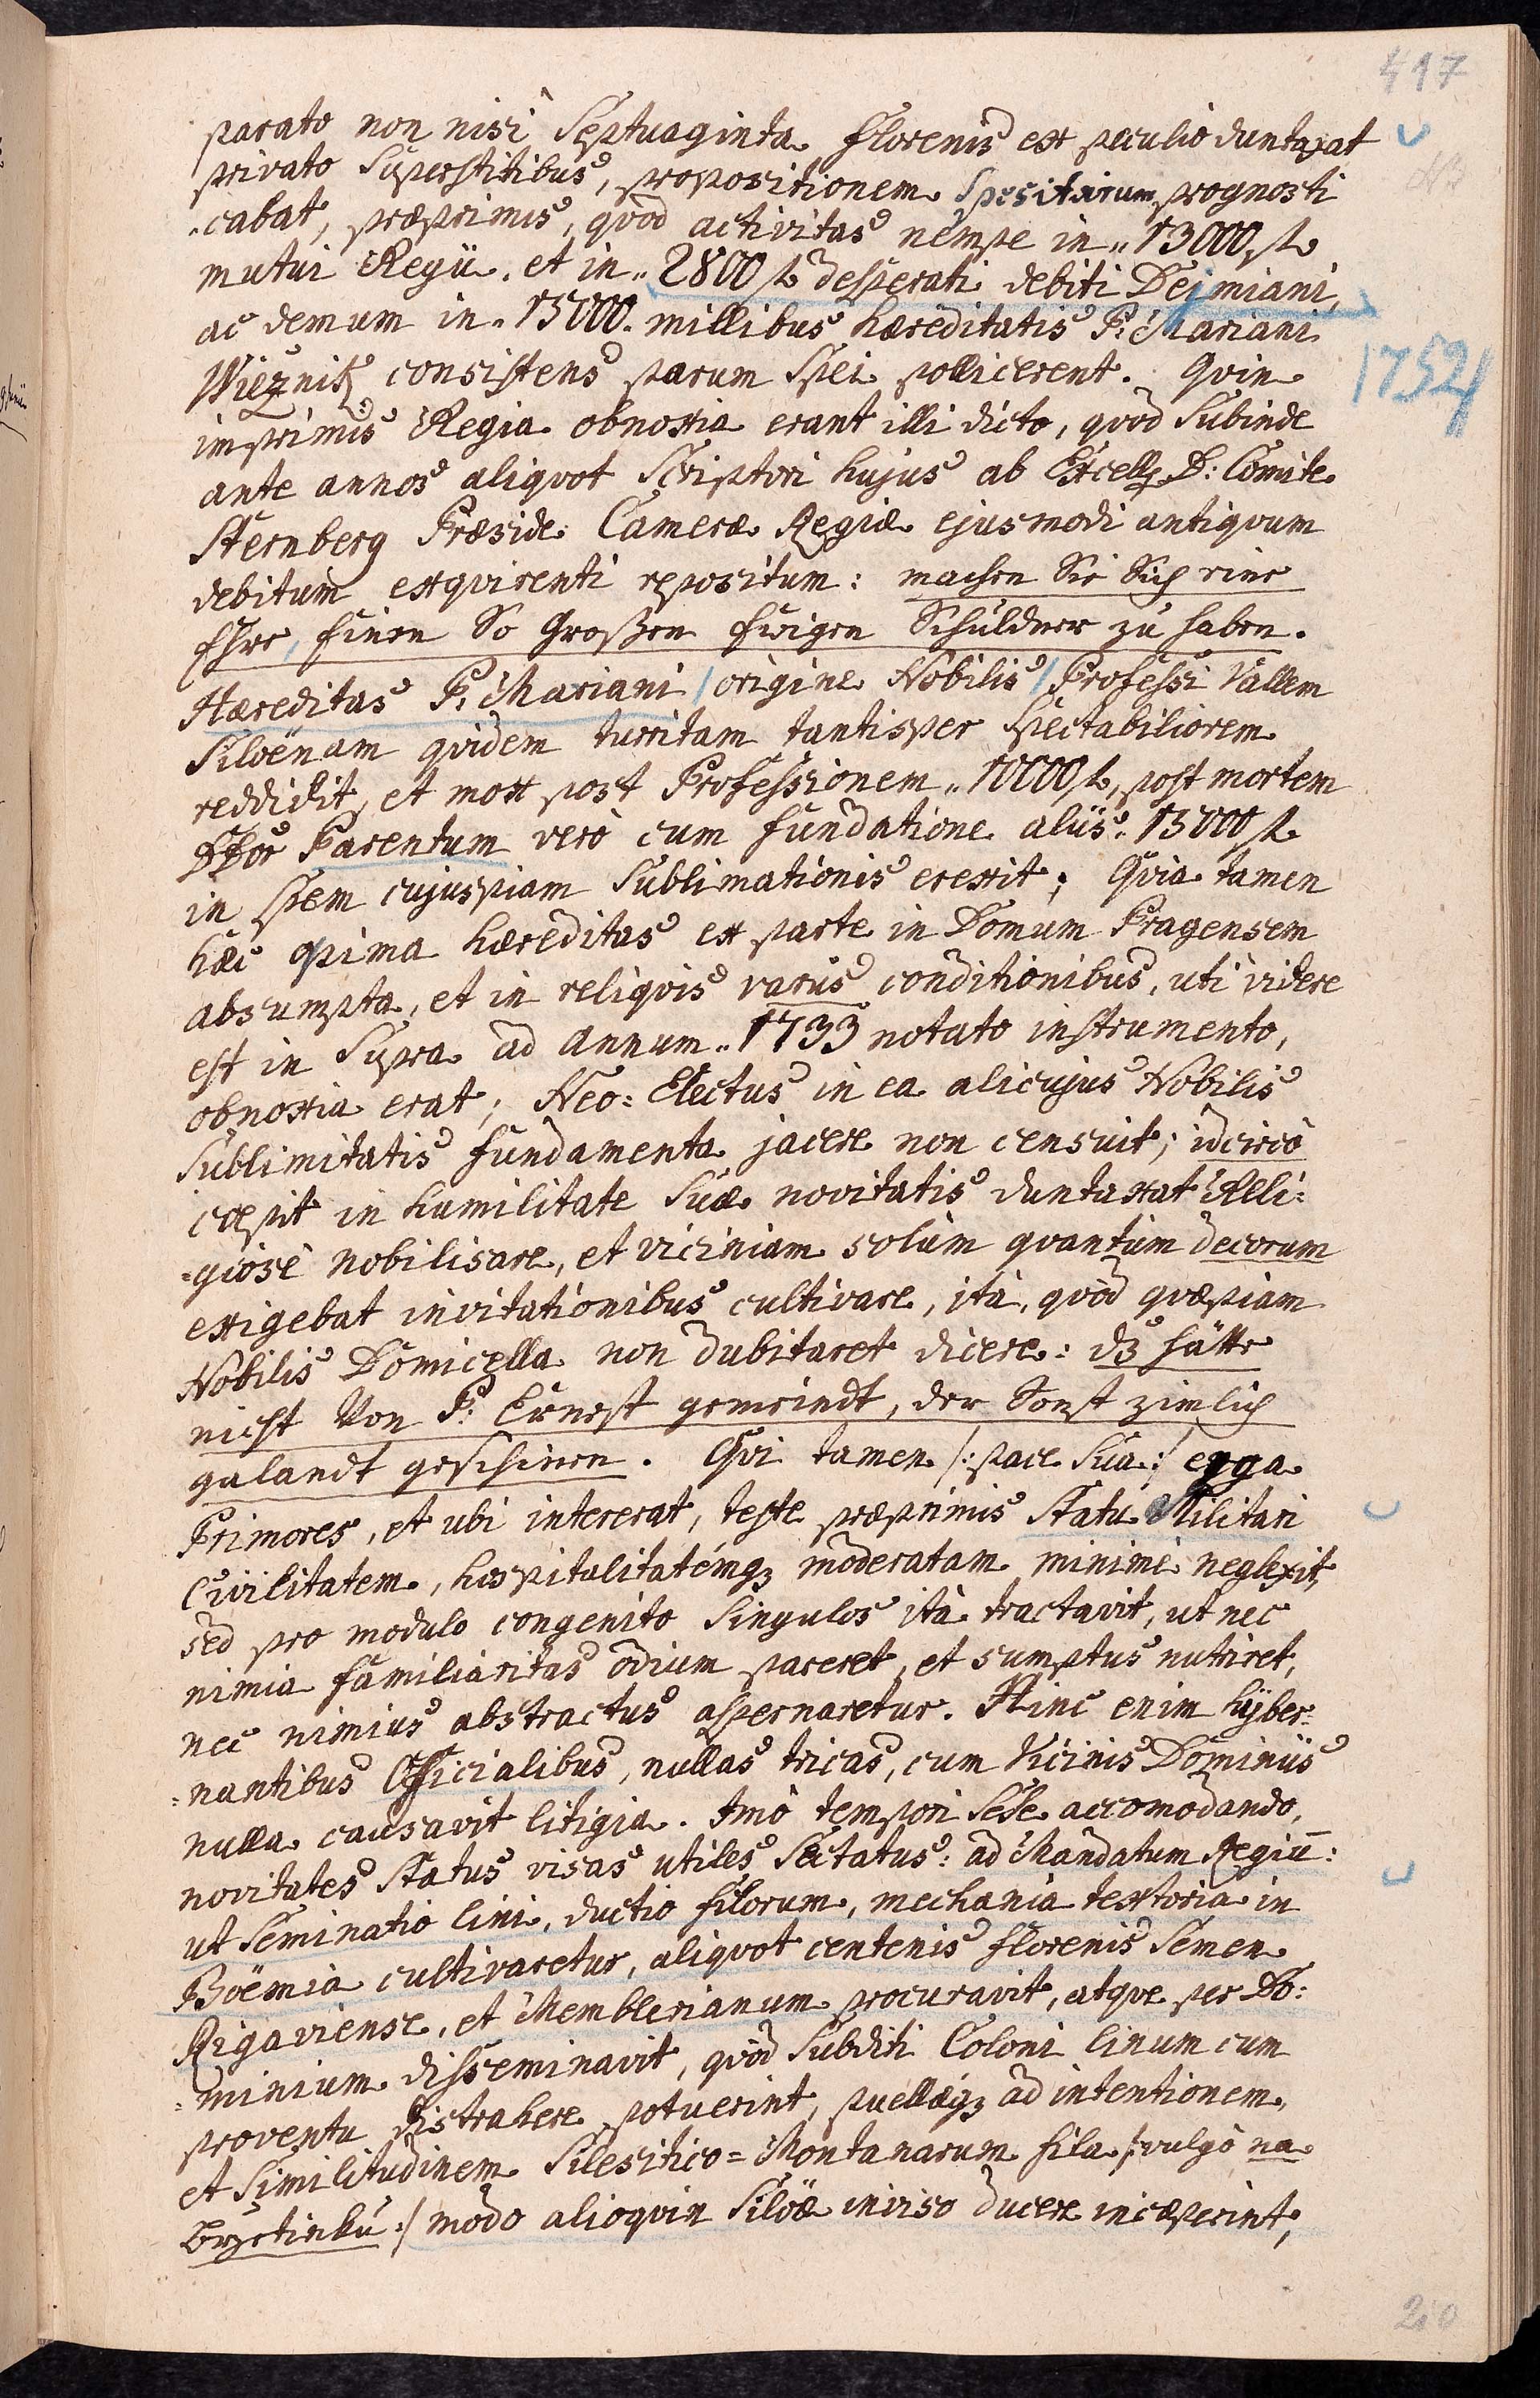 417
parato non nisi Septuaginta Florenis ex peculio duntaxat
privato Superstitibus, propositionem Spesitarum prognosti
„cabat, præprimis, quòd activitas nempe in „ 13000 fl
mutui Regii, et in „ 2800 fl desperati debiti Dejmiani,
ac demum in „ 13000 millibus hæreditatis P: Mariani
Wieznik consistens parum Spei pollicerent. Qvin
1752
imprimis Regia obnoxia erant illi dicto, qvòd Subinde
ante annos aliqvot Scriptori hujus ab Excell: D: Comite
Sternberg Præside Cameræ Regiæ ejusmodi antiqvum
debitum exqvirenti repositum: machen Sie Sich eine
Ehre, Einen So Großen Ewigen Schuldner zu haben.
Hæreditas P: Mariani / origine Nobilis / Professi Vallem
Silvënam qvidem turritam tantisper Spectabiliorem
reddidit, et mox post Professionem „ 10000 fl, post mortem
DDor Parentum verò cum fundatione aliis „ 13000 fl
in Spem cujuspiam Sublimationis erexit; Qvia tamen
hæc opima hæreditas ex parte in Domum Pragensem
absumpta, et in reliqvis variis conditionibus, uti videre
est in Supra ad Annum „ 1733 notato instrumento,
obnoxia erat; Neo-Electus in ea alicujus Nobilis
Sublimitatis fundamenta jacere non censuit; idcircò
cæpit in humilitate Suæ novitatis duntaxat Reli=
=giosè nobilisare, et viciniam solùm qvantùm decorum
exigebat invitationibus cultivare, ità, qvòd qvæpiam
Nobilis Domicella non dubitaret dicere: dz hätte
nicht Von P: Ernest gemeindt, der Sonst zimlich
galandt geschinen. Qvi tamen /: pace Sua :/ erga
Primores, et ubi intererat, teste præprimis Statu Militari
Civilitatem, hospitalitatémqz moderatam minimè neglexit,
sed pro modulo congenito Singulos ità tractavit, ut nec
nimia familiaritas odium pareret, et sumptus nutriret,
nec nimius abstractus aspernaretur. Hinc enim hÿber=
=nantibus Officialibus, nullas tricas, cum Vicinis Dominiis
nulla causavit litigia. Imò tempori Sese accomodando,
novitates Status visas utiles Sectatus: ad Mandatum Regiū:
ut Seminatio lini, ductio filorum, mechania textoria in
Boëmia cultivaretur, aliqvot centenis florenis Semen
Rigaviense, et Memblerianum procuravit, atqve per Do=
=minium disseminavit, qvòd Subditi Coloni linum cum
proventu distrahere potuerint, puellæqz ad intentionem,
et Similitudinem Silesitico=Montanarum fila /: vulgò na
:/ modo alioqvin Silvæ inviso ducere incæperint,
210